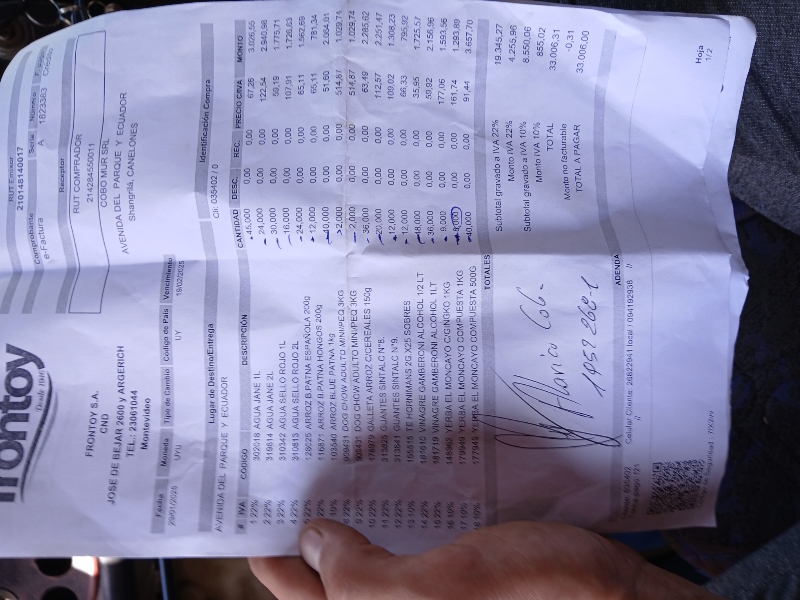 frontoy
Desde 1916
FRONTOY S.A.
CND
JOSE DE BEJAR 2600 y ARGERICH
TEL.: 23061044
Montevideo
RUT Emisor
210148140017
Comprobante Serie Número F. Pago
e-Factura A 1823383 Crédito
Receptor
RUT COMPRADOR
214284550011
COBO MUR SRL
AVENIDA DEL PARQUE Y ECUADOR
Shangrilá, CANELONES
Fecha Moneda Tipo de Cambio Código de País Vencimiento
29/01/2025 UYU UY 19/02/2025
Lugar de Destino/Entrega Identificación Compra
AVENIDA DEL PARQUE Y ECUADOR Cli: 035402 / 0
# IVA CÓDIGO DESCRIPCIÓN CANTIDAD DESC. REC. PRECIO C/IVA MONTO
1 22% 302018 AGUA JANE 1L 45,000 0,00 0,00 67,26 3.026,55
2 22% 319814 AGUA JANE 2L 24,000 0,00 0,00 122,54 2.940,96
3 22% 310342 AGUA SELLO ROJO 1L 30,000 0,00 0,00 59,19 1.775,71
4 22% 310813 AGUA SELLO ROJO 2L 16,000 0,00 0,00 107,91 1.726,63
5 22% 128025 ARROZ B.PATNA ESPAÑOLA 200g 24,000 0,00 0,00 65,11 1.562,69
22% 116871 ARROZ B.PATNA HONGOS 200g 12,000 0,00 0,00 65,11 781,34
10% 103540 ARROZ BLUE PATNA 1kg 40,000 0,00 0,00 51,60 2.064,01
8 22% 909431 DOG CHOW ADULTO MINI/PEQ 3KG 2,000 0,00 0,00 514,87 1.029,74
9 22% 909431 DOG CHOW ADULTO MINI/PEQ 3KG 2,000 0,00 0,00 514,87 1.029,74
10 22% 178079 GALLETA ARROZ C/CEREALES 150g 36,000 0,00 0,00 63,49 2.285,62
11 22% 313525 GUANTES SINTALC N°8. 20,000 0,00 0,00 112,57 2.251,47
12 22% 313541 GUANTES SINTALC N°9. 12,000 0,00 0,00 109,02 1.308,23
13 10% 155615 TE HORNIMANS 2G X25 SOBRES 12,000 0,00 0,00 66,33 795,92
14 22% 181610 VINAGRE GAMBERONI ALCOHOL 1/2 LT 48,000 0,00 0,00 35,95 1.725,57
15 22% 181719 VINAGRE GAMBERONI ALCOHOL 1LT 36,000 0,00 0,00 59,92 2.156,96
16 10% YERBA EL MONCAYO C/GINGKO 1KG 9,000 0,00 0,00 177,06 1.593,56
17 10% 179949 YERBA EL MONCAYO COMPUESTA 1KG 8,000 0,00 0,00 161,74 1.293,89
18 10% 177946 YERBA EL MONCAYO COMPUESTA 500G 40,000 0,00 0,00 91,44 3.657,70
TOTALES
Subtotal gravado a IVA 22% 19.345,27
Monto IVA 22% 4.255,96
Subtotal gravado a IVA 10% 8.550,06
Monto IVA 10% 855,02
TOTAL 33.006,31
Monto no facturable -0,31
TOTAL A PAGAR 33.006,00
1952 268-1
ADENDA
Celular Cliente: 26822941 local / 094192936 //
//
Hoja
1/2